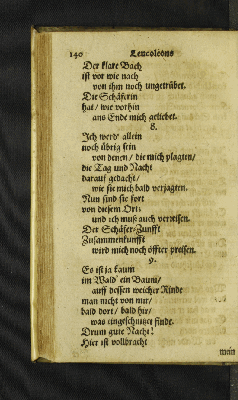 140 Leucoleons
Der klare Bach
ist vor wie nach
von ihm noch ungetrübet.
Die Schäferin
hat / wie vorhin
ans Ende mich geliebet.
8.
Ich werd' allein
noch übrig sein
von denen / die mich plagten /
die Tag und Nacht
darauf gedacht /
wie sie mich bald verjagten.
Nun sind sie fort
von diesem Ort:
und ich muß auch verreisen.
Der Schäfer-Zunfft
Zusammenkunfft
wird mich noch öffter preisen.
9.
Es ist ja kaum
im Wald' ein Baum /
auff dessen weicher Rinde
man nicht von mir /
bald dort / bald hir /
was eingeschnitzet finde.
Drum gute Nacht!
Hier ist vollbracht
mein